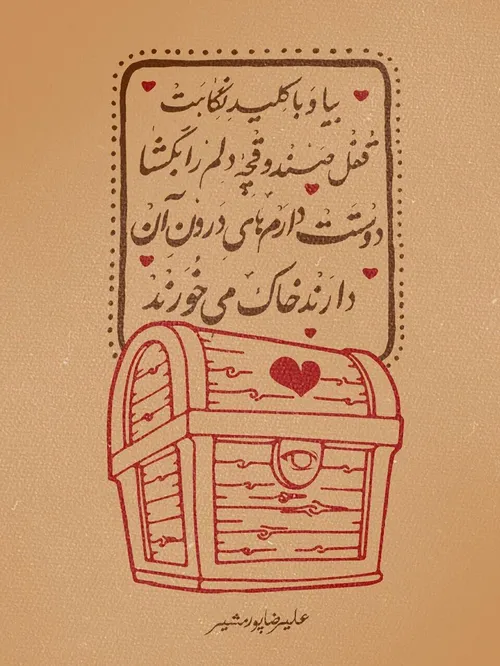 بیا و با کلیدِ نگاهت
قفل صندوقچهٔ دلم را بگشا
دوستت دارم‌های درون آن
دارند خاک می‌خورند
علیرضا پورمشیر